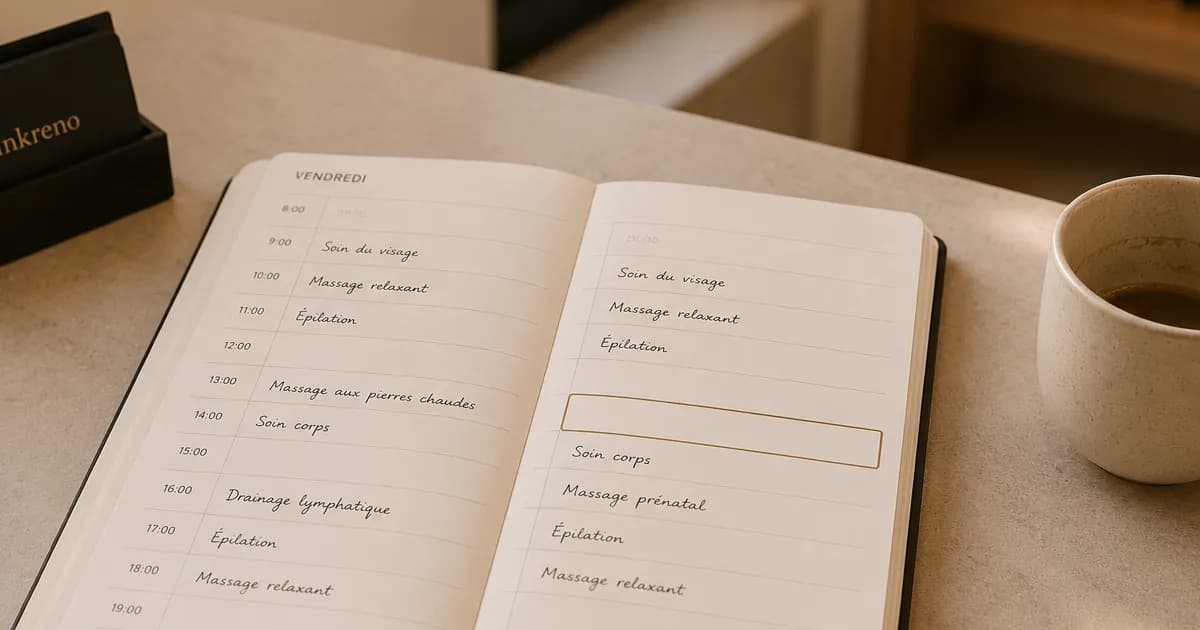 nkreno
VENDREDI
8:00
9:00 Soin du visage
10:00 Massage relaxant
11:00 Épilation
12:00
13:00 Massage aux pierres chaudes
14:00 Soin corps
15:00
16:00 Drainage lymphatique
17:00 Épilation
18:00 Massage relaxant
19:00
Soin du visage
Massage relaxant
Épilation
Soin corps
Massage prénatal
Épilation
Massage relaxant